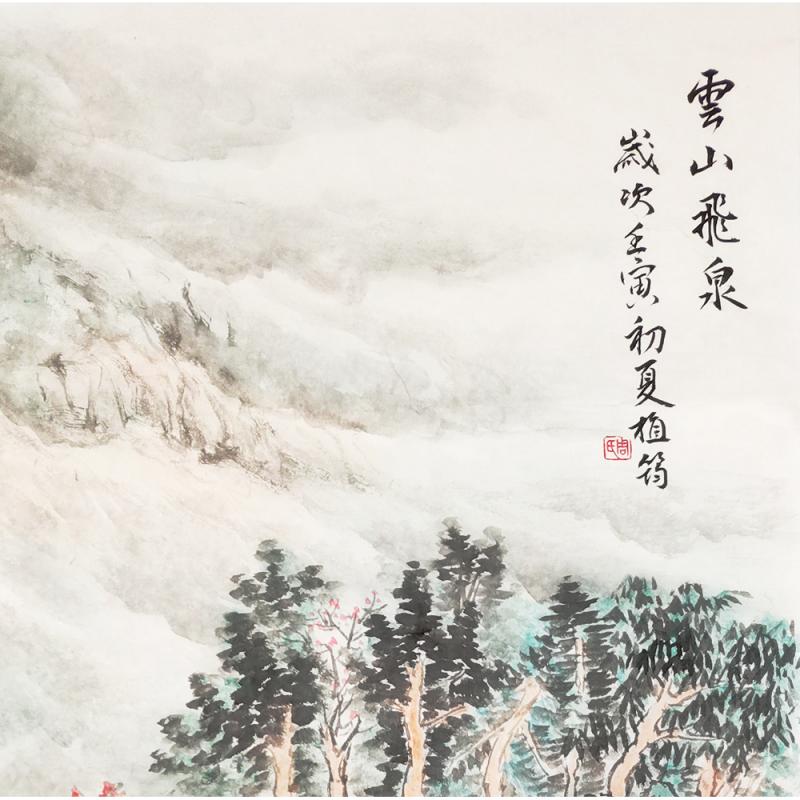 雲山飛泉
歲次壬寅初夏植筠
周氏